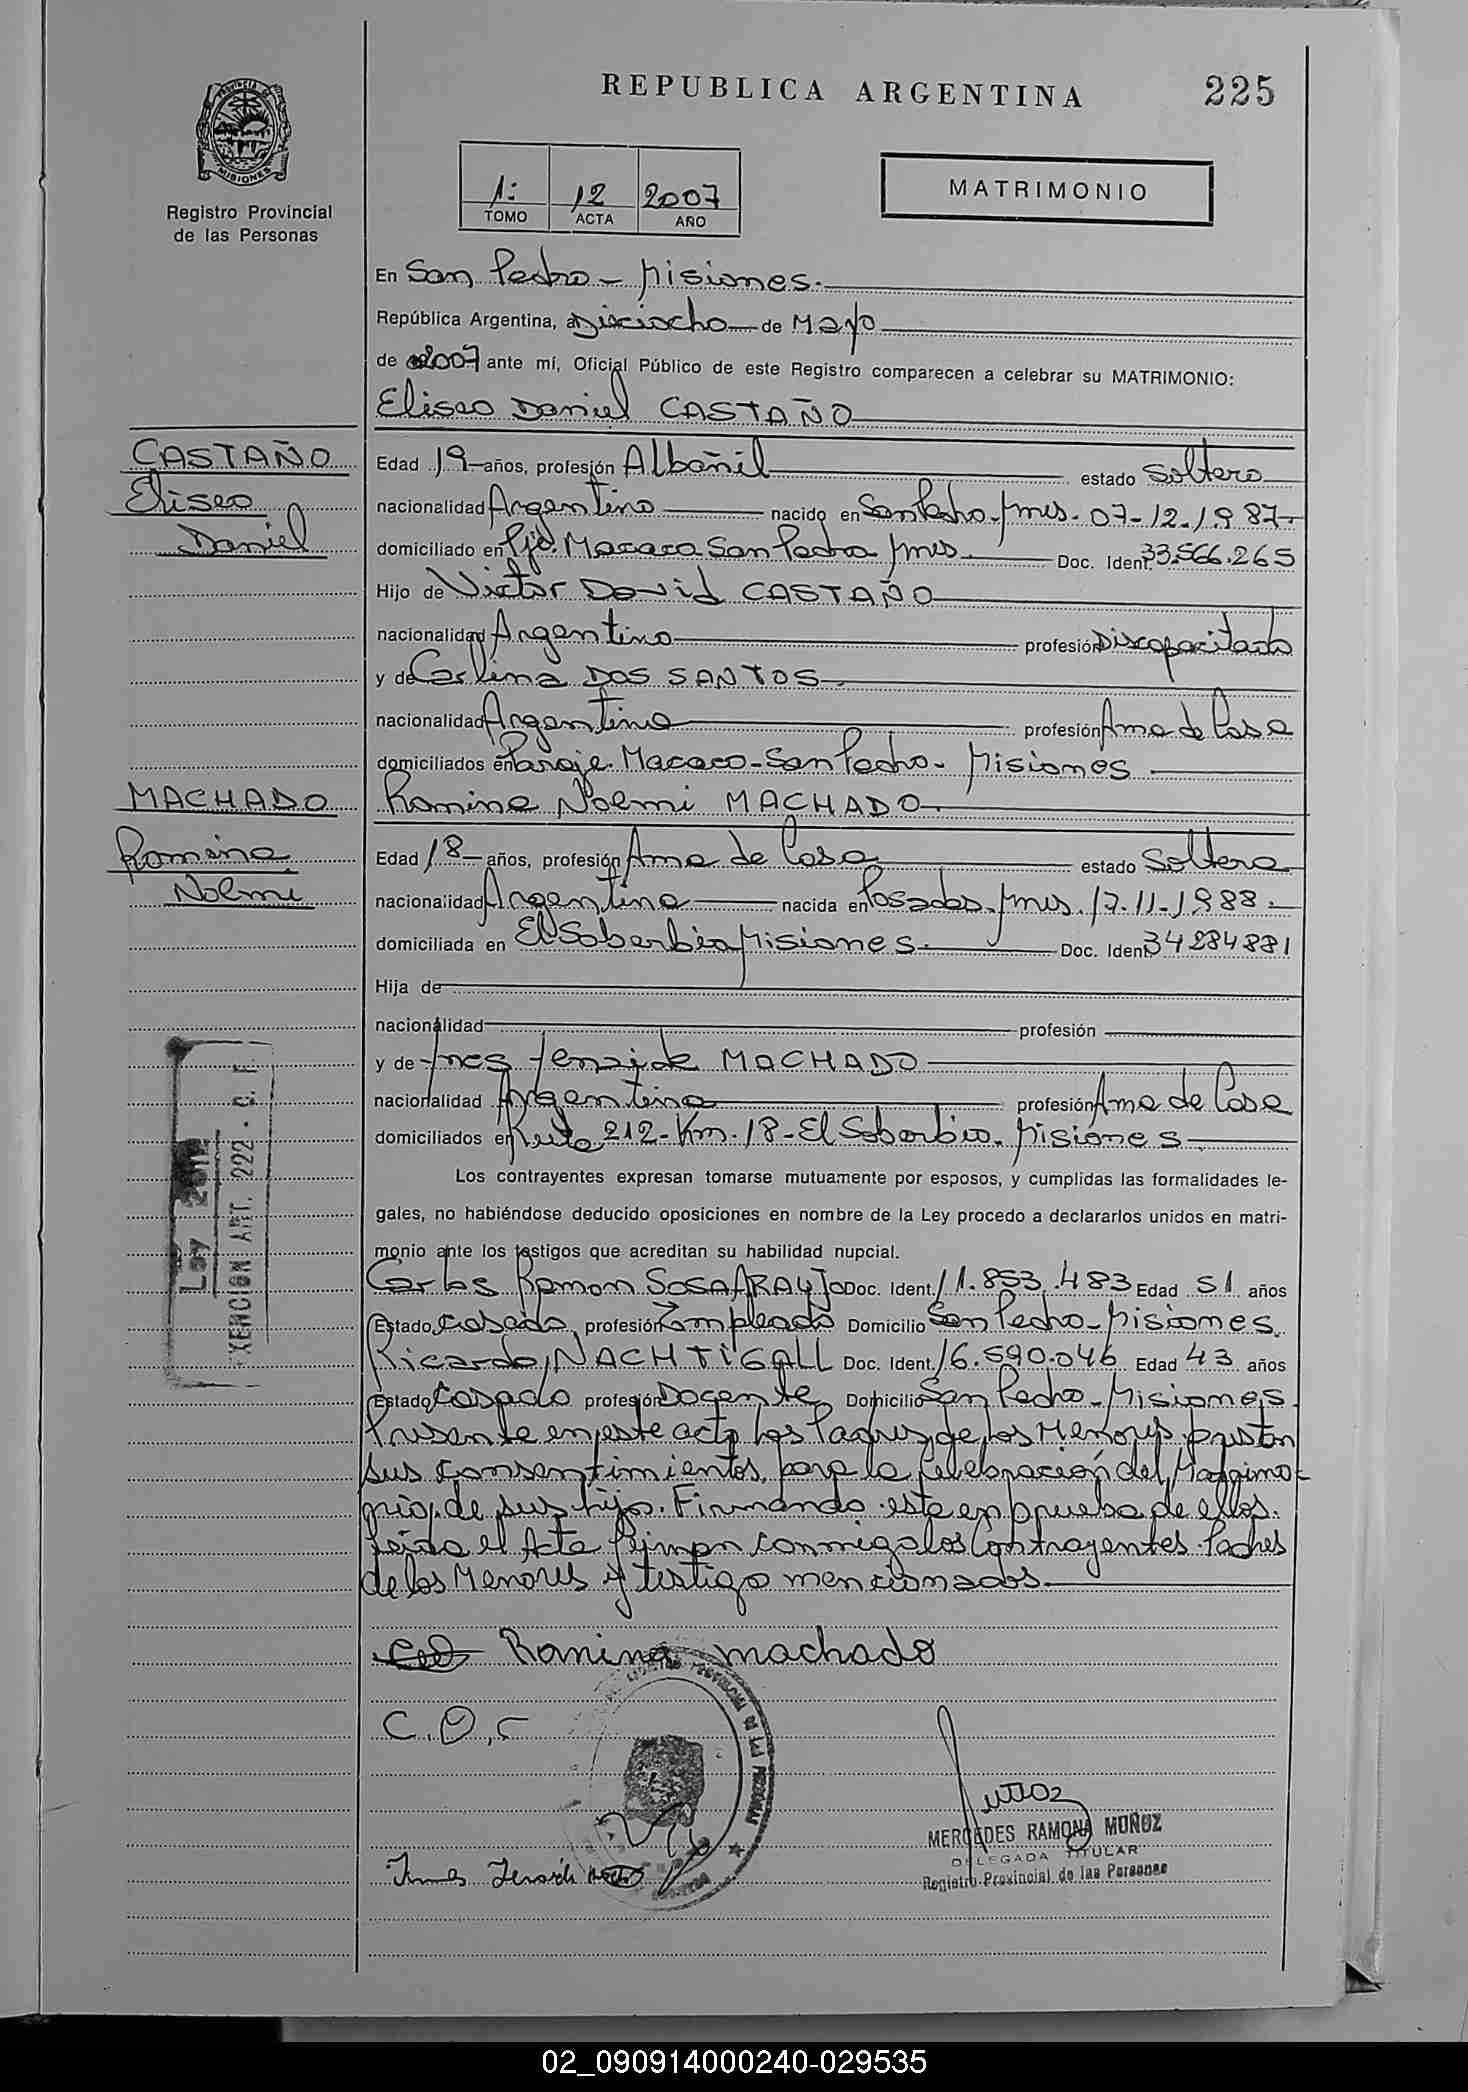 REPUBLICA ARGENTINA
225
PROVINCIA DE
MISIONES
Registro Provincial
de las Personas
1: 12 2007
TOMO ACTA AÑO
MATRIMONIO
En San Pedro - Misiones.
República Argentina, a Dieciocho de Mayo
de 2007 ante mí, Oficial Público de este Registro comparecen a celebrar su MATRIMONIO:
Eliseo Daniel CASTAÑO
CASTAÑO
Eliseo
Daniel
Edad 19 años, profesión Albañil estado Soltero
nacionalidad Argentino nacido en San Pedro - Mnes. 07-12-1987.
domiciliado en Pje. Macaca San Pedro Mnes Doc. Ident. 33.566.265
Hijo de Victor David CASTAÑO
nacionalidad Argentino profesión Discapacitado
y de Carlina DOS SANTOS
nacionalidad Argentina profesión Ama de Casa
domiciliados en Paraje Macaco - San Pedro - Misiones
MACHADO
Romina
Noemi
Romina Noemi MACHADO
Edad 18 años, profesión Ama de Casa estado Soltera
nacionalidad Argentina nacida en Posadas, Mnes. 17-11-1988.
domiciliada en El Soberbio Misiones. Doc. Ident. 34284881
Hija de
nacionalidad profesión
y de Ines MACHADO
nacionalidad Argentina profesión Ama de Casa
domiciliados en Ruta 212 - Km. 18 - El Soberbio. Misiones
Ley
EXENCION ART. 222 - C. F.
Los contrayentes expresan tomarse mutuamente por esposos, y cumplidas las formalidades le-
gales, no habiéndose deducido oposiciones en nombre de la Ley procedo a declararlos unidos en matri-
monio ante los testigos que acreditan su habilidad nupcial.
Carlos Ramon SOSA ARAUJO Doc. Ident. 11.853.483 Edad 51 años
Estado Casado profesión Empleado Domicilio San Pedro - Misiones.
Ricardo NACHTIGALL Doc. Ident. 16.590.046 Edad 43 años
Estado Casado profesión Docente Domicilio San Pedro - Misiones
Presente en este acto los Padres de los Menores prestan
sus consentimientos para la Celebración del Matrimo-
nio, de sus hijos. Firmando este en prueba de ellos.
Leida el Acta firman conmigo los Contrayentes. Padres
de los Menores y testigo mencionados.
Romina machado
C.O.C
MERCEDES RAMONA MUÑOZ
DELEGADA TITULAR
Registro Provincial de las Personas
Ines
02_090914000240-029535